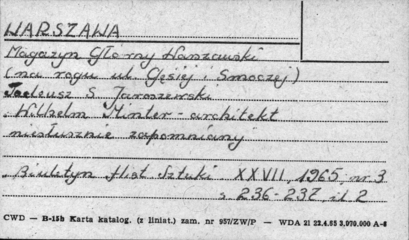 WARSZAWA
Magazyn Główny Warszawski
(na rogu ul. Gęsiej i Smoczej)
Tadeusz S. Jaroszewski
Wilhelm Minter - architekt
niesłusznie zapomniany
Biuletyn Hist Sztuki XXVII, 1965, nr 3
s. 236-237, il 2
CWD — B-15b Karta katalog. (z liniat.) zam. nr 957/ZW/P — WDA 21 22.4.65 3,070.000 A-6